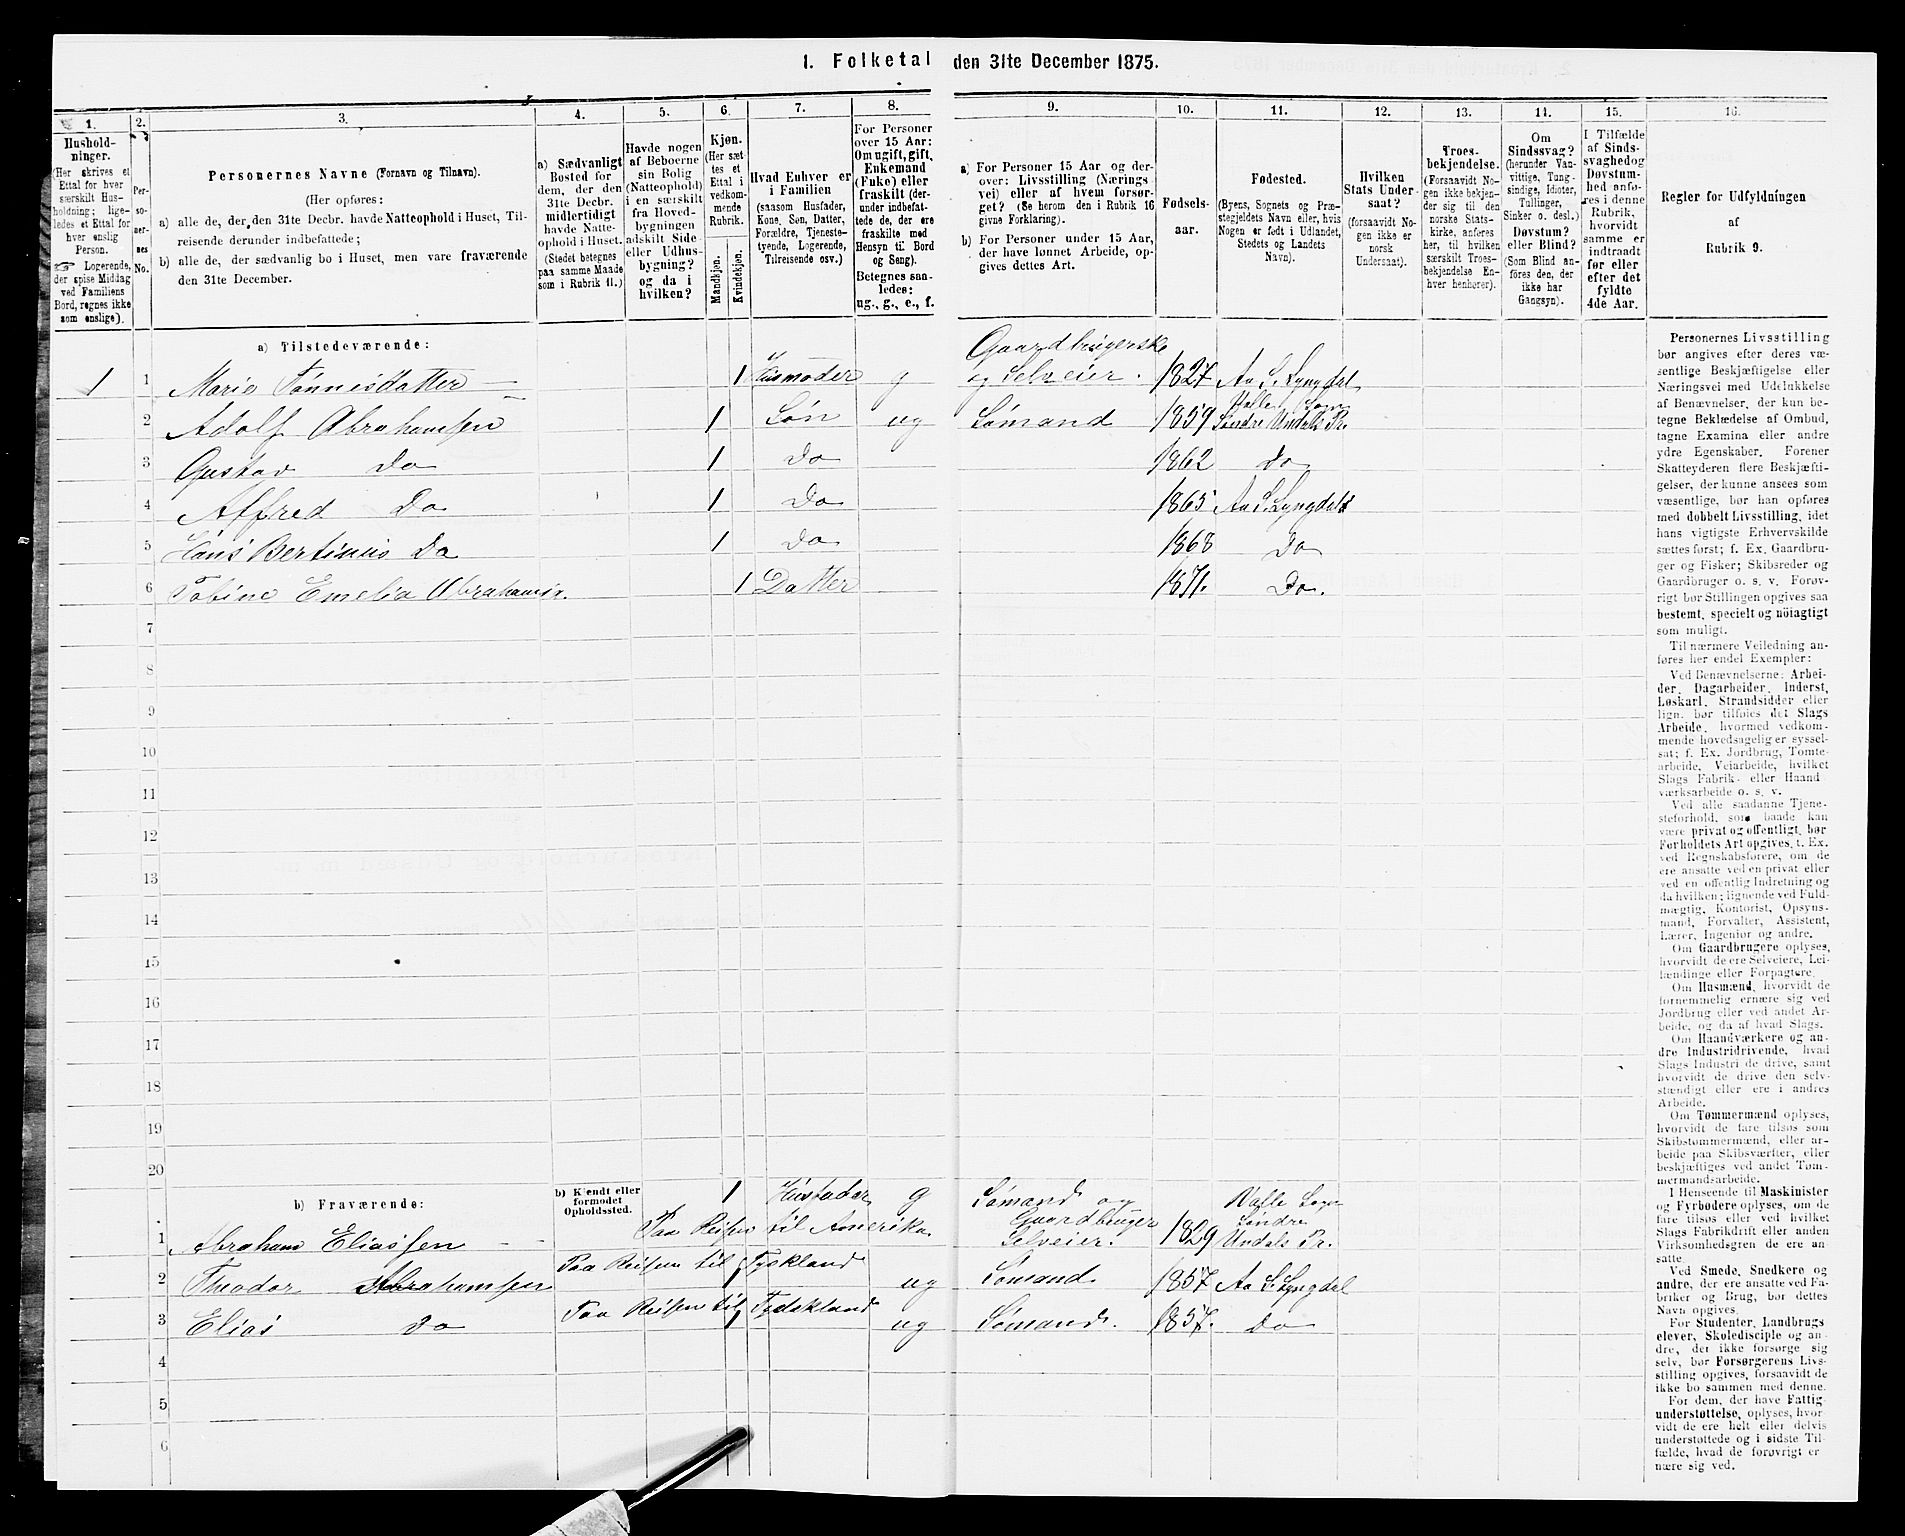 1. Folketal den 31te December 1875.
1.
Hushold-
ninger.
(Her skrives et
Ettal for hver
særskilt Hus-
holdning; lige-
ledes et Ettal for
hver enslig
Person.
☞ Logerende,
der spise Middag
ved Familiens
Bord, regnes ikke
som enslige).
2.
Per-
so-
ner-
nes
No.
3.
Personernes Navne (Fornavn og Tilnavn).
(Her opføres:
a) alle de, der den 31te Decbr. havde Natteophold i Huset, Til-
reisende derunder indbefattede;
b) alle de, der sædvanlig bo i Huset, men vare fraværende
den 31te December.
4.
a) Sædvanligt
Bosted for
dem, der den
31te Decbr.
midlertidigt
havde Natte-
ophold i Huset.
(Stedet betegnes
paa samme Maade
som i Rubrik 11.)
5.
Havde nogen
af Beboerne
sin Bolig
(Natteophold)
i en særskilt
fra Hoved-
bygningen
adskilt Side-
eller Udhus-
bygning?
og da i
hvilken?
6.
Kjøn.
(Her sæt-
tes et
Ettal i
vedkom-
mende
Rubrik.
Mandkjøn.
Kvindekjøn.
7.
Hvad Enhver er
i Familien
(saasom Husfader,
Kone, Søn, Datter,
Forældre, Tjeneste-
tyende, Logerende,
Tilreisende osv.)
8.
For Personer
over 15 Aar:
Om ugift, gift,
Enkemand
(Fuke) eller
fraskilt (der-
under indbefat-
tede de, der ere
fraskilte med
Hensyn til Bord
og Seng).
Betegnes saa-
ledes:
ug., g., e., f.
9.
a) For Personer 15 Aar og der-
over: Livsstilling (Nærings
vei) eller af hvem forsør-
get? (Se herom den i Rubrik 16
givne Forklaring).
b) For Personer under 15 Aar,
der have lønnet Arbeide, op-
gives dettes Art.
10.
Fødsels-
aar.
11.
Fødested.
(Byens, Sognets og Præ-
stegjeldets Navn eller, hvis
Nogen er født i Udlandet,
Stedets og Landets
Navn).
12.
Hvilken
Stats Under-
saat?
(forsaavidt No-
gen ikke er
norsk
Undersaat).
13.
Troes-
bekjendelse.
(Forsaavidt No-
gen ikke bekjen-
der sig til den
norske Stats-
kirke, anføres
her, til hvilken
særskilt Troes-
bekjendelse En-
hver henhører).
14.
Om
Sindssvag?
(herunder Van-
vittige, Tung-
sindige, Idioter,
Tullinger,
Sinker o. desl.)
Døvstum?
eller Blind?
(Som Blind an-
føres den, der
ikke har
Gangsyn).
15.
I Tilfælde
af Sinds-
svaghedog
Døvstum-
hed anfø-
res i denne
Rubrik,
hvorvidt
samme er
indtraadt
før eller
efter det
fyldte
4de Aar.
16.
Regler for Udfyldningen
af
Rubrik 9.
a) Tilstedeværende:
1 1 Marie Tønnesdatter — 1 Husmoder g Gaardbrugerske
og Selveier. 1827 Aa S. Lyngdal
2 Adolf Abrahamsen — 1 Søn ug Sømand 1859 Valle Sogn
Søndre Undals Pr.
3 Gustav Do 1 Do 1862 Do
4 Alfred Do 1 Do 1865 Aa S. Lyngdal
5 Hans Bertinius Do 1 Do 1868 Do
6 Tobine Emelia Abrahamsr. 1 Datter 1871. Do.
7
8
9
10
11
12
13
14
15
16
17
18
19
20
b) Fraværende:
b) Kjendt eller
formodet
Opholdssted.
1 Abraham Eliassen - - Paa Reisen til Amerika 1 Husfader g Sømand og
Gaardbruger
Selveier. 1829 Valle Sogn
Søndre
Undals Pr.
2 Theodor Abrahamsen Paa Reisen til Tyskland 1 ug Sømand 1857 Aa S. Lyngdal
3 Elias Do Paa Reisen til Tydskland 1 ug Sømand. 1857. Do
4
5
6
Personernes Livsstilling
bør angives efter deres væ-
sentlige Beskjæftigelse eller
Næringsvei med Udelukkelse
af Benævnelser, der kun be-
tegne Beklædelse af Ombud,
tagne Examina eller andre
ydre Egenskaber. Forener
Skatteyderen flere Beskjæfti-
gelser, der kunne ansees som
væsentlige, bør han opføres
med dobbelt Livsstilling, idet
hans vigtigste Erhvervskilde
sættes først; f. Ex. Gaardbru-
ger og Fisker; Skibsreder og
Gaardbruger o. s. v. Forøv-
rigt bør Stillingen opgives saa
bestemt, specielt og nöiagtigt
som muligt.
Til nærmere Veiledning an-
føres her endel Exempler:
Ved Benævnelserne: Arbei-
der, Dagarbeider, Inderst,
Løskarl, Strandsidder eller
lign. bør tilføies det Slags
Arbeide, hvormed vedkom-
mende hovedsagelig er syssel-
sat; f. Ex. Jordbrug, Tomte-
arbeide, Veiarbeide, hvilket
Slags Fabrik- eller Haand-
værksarbeide o. s. v.
Ved alle saadanne Tjene-
steforhold, som baade kan
være privat og offentligt, bør
Forholdets Art opgives, t. Ex.
ved Regnskabsførere, om de
ere ansatte ved en privat eller
ved en offentlig Indretning og
da hvilken; lignende ved Fuld-
mægtig, Kontorist, Opsyns-
mand, Forvalter, Assistent,
Lærer, Ingeniør og andre.
Om Gaardbrugere oplyses,
hvorvidt de ere Selveiere, Lei-
lændinge eller Forpagtere.
Om Husmænd, hvorvidt de
fornemmelig ernære sig ved
Jordbrug eller ved andet Ar-
beide, og da af hvad Slags.
Om Haandværkere og an-
dre Industridrivende, hvad
Slags Industri de drive, samt
hvorvidt de drive den selv-
stændigt eller ere i andres
Arbeide.
Om Tømmermænd oplyses,
hvorvidt de fare tilsøs som
Skibstømmermænd, eller ar-
beide paa Skibsværfter, eller
beskjæftiges ved andet Tøm-
mermandsarbeide.
I Henseende til Maskinister
og Fyrbødere oplyses, om de
fare tilsøs eller ved hvilket
Slags Fabrikdrift eller anden
Virksomhedsgren de ere an-
satte.
Ved Smede, Snedkere og
andre, der ere ansatte ved Fa-
briker og Brug, bør dettes
Navn opgives.
For Studenter, Landbrugs
elever, Skoledisciple og an-
dre, der ikke forsørge sig
selv, bør Forsørgerens Livs-
stilling opgives, forsaavidt de
ikke bo sammen med denne.
For dem, der have Fattig-
understøttelse, oplyses, hvor-
vidt de ere helt eller delvis
understøttede og i sidste Til-
fælde, hvad de forøvrigt er-
nære sig ved.